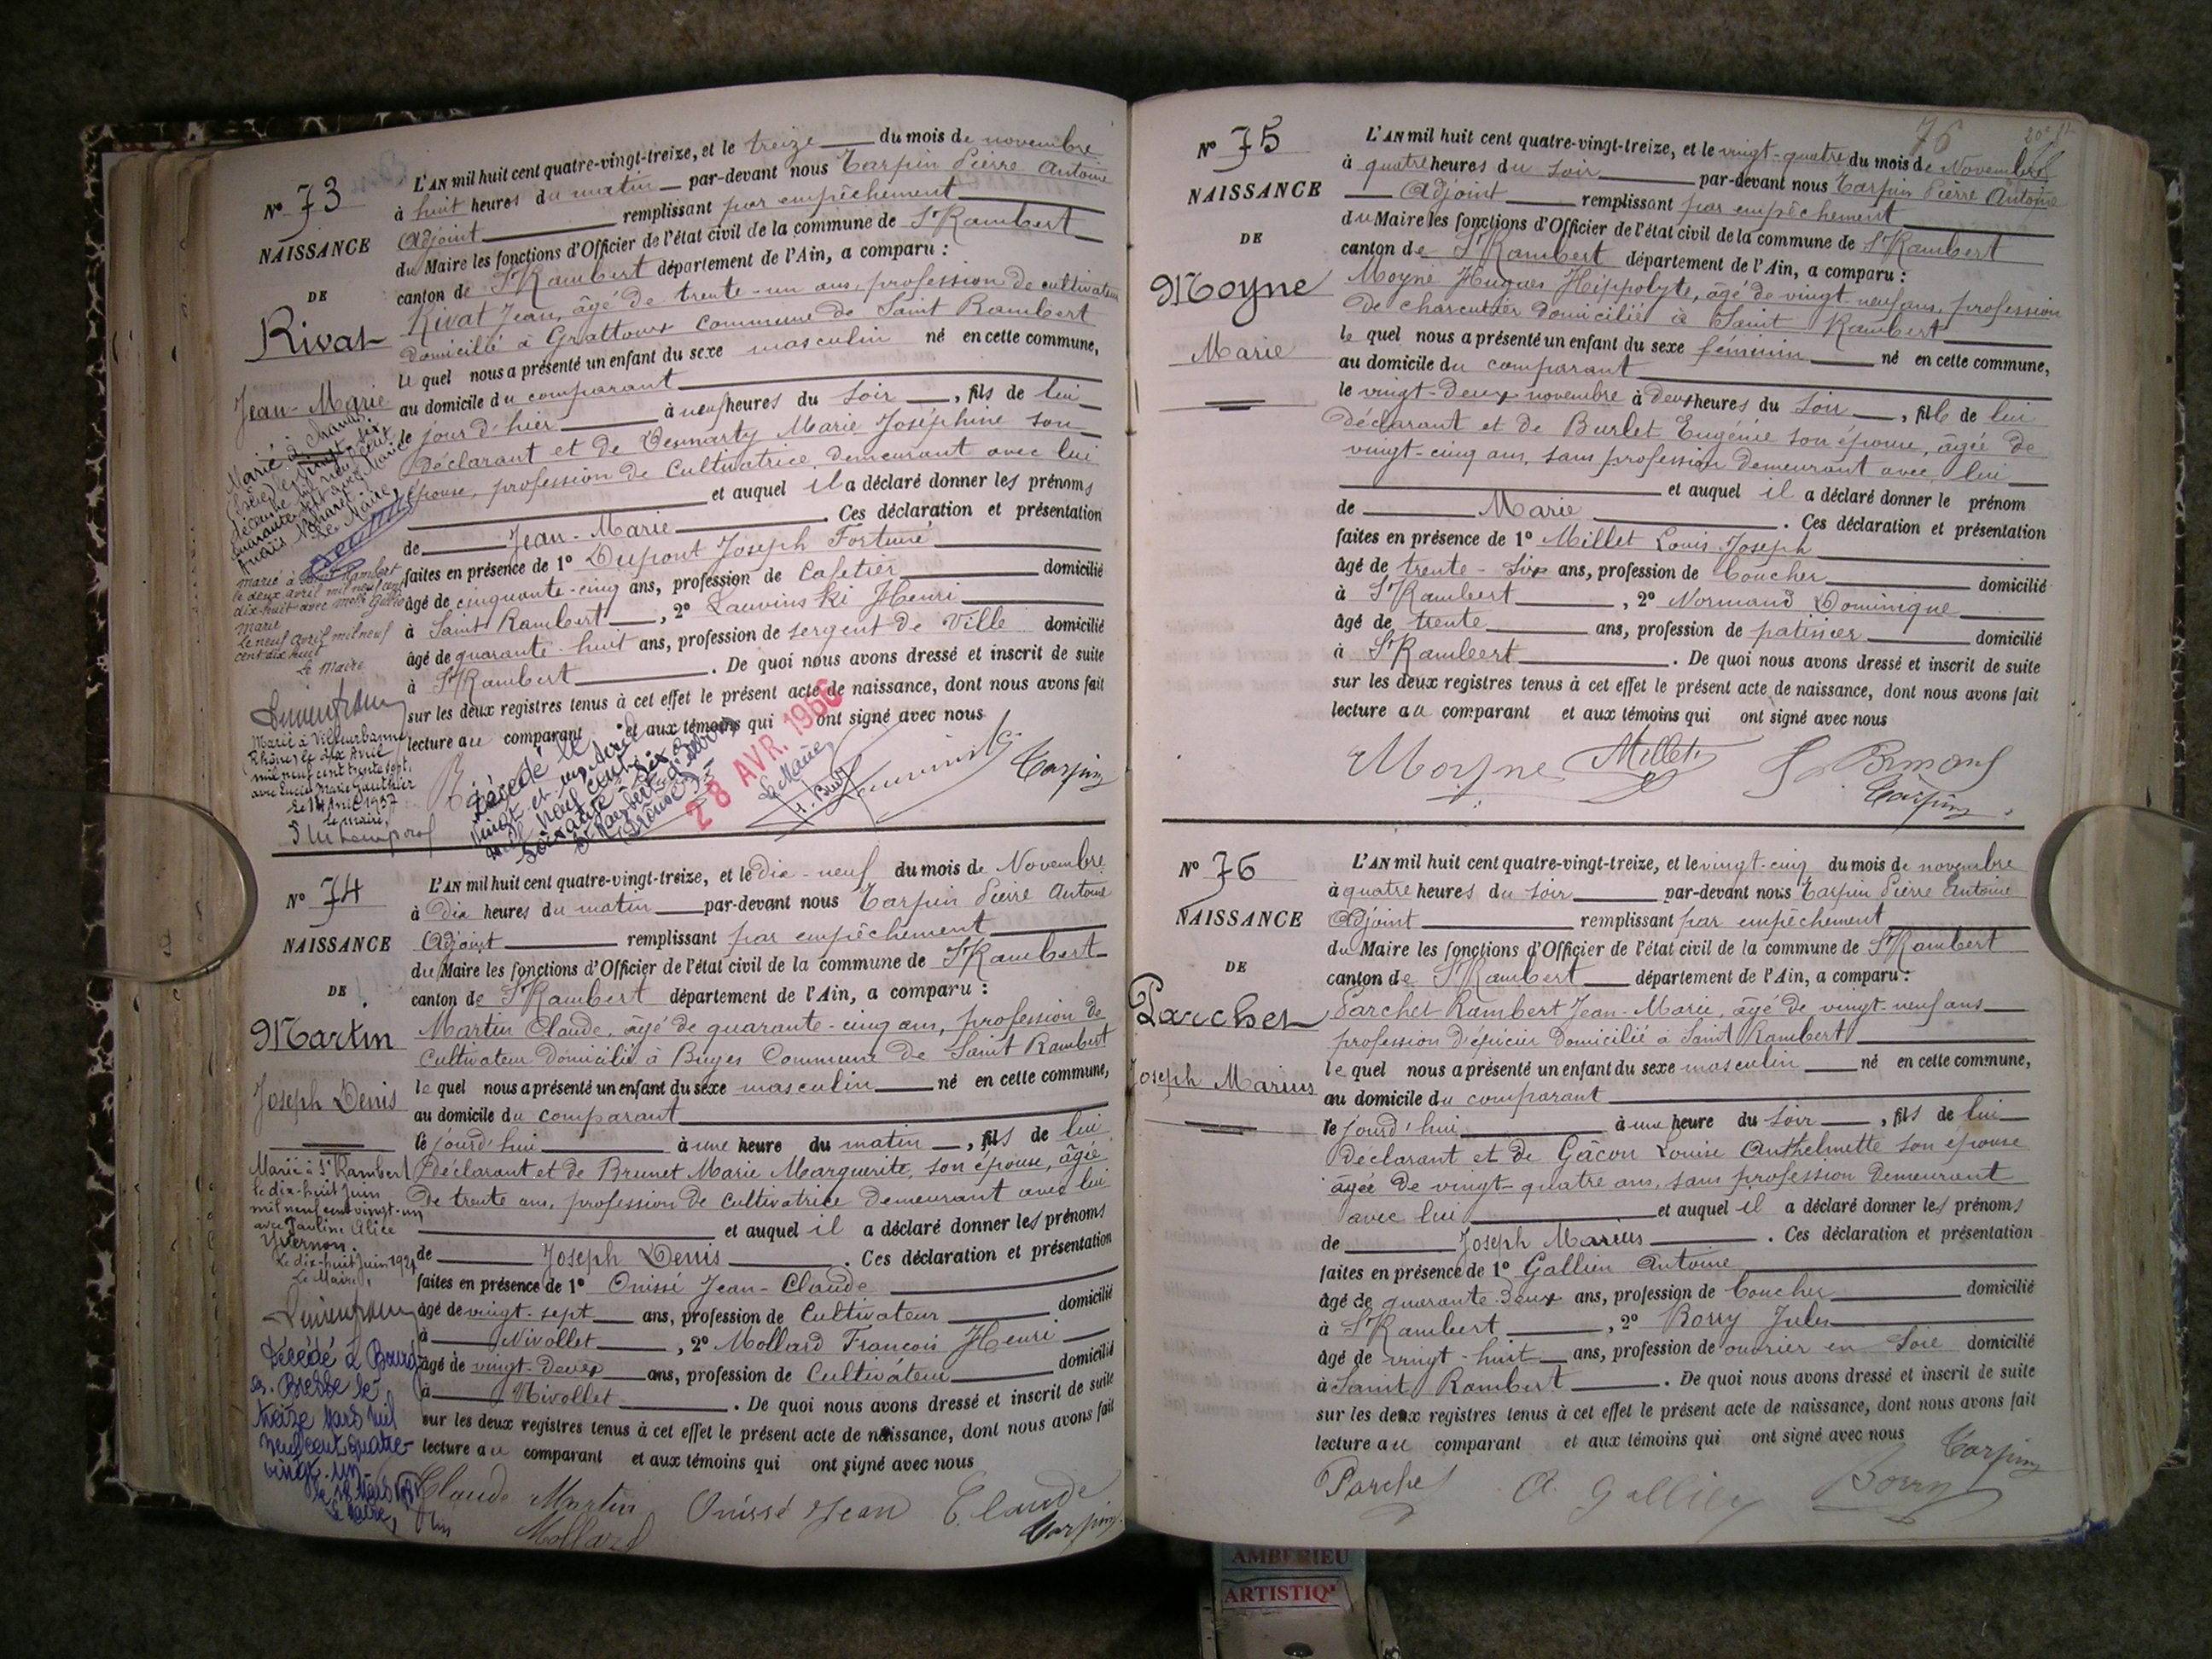 N° 73
NAISSANCE
DE
Rivat
Jean-Marie
L'AN mil huit cent quatre-vingt-treize, et le treize du mois de novembre
à huit heures du matin par-devant nous Tarpin Pierre Antoine
Adjoint remplissant par empêchement
du Maire les fonctions d'Officier de l'état civil de la commune de St Rambert
canton de St Rambert département de l'Ain, a comparu :
Rivat Jean, âgé de trente-un ans, profession de cultivateur
domicilié à Grattoux commune de Saint Rambert
le quel nous a présenté un enfant du sexe masculin né en cette commune,
au domicile du comparant
le jour d'hier à neuf heures du soir, fils de lui
déclarant et de Marie Joséphine son
épouse, profession de cultivatrice demeurant avec lui
et auquel il a déclaré donner les prénoms
de Jean-Marie. Ces déclaration et présentation
faites en présence de 1° Dupont Joseph Fortuné
âgé de cinquante-cinq ans, profession de Cafetier domicilié
à Saint Rambert, 2° Henri
âgé de quarante-huit ans, profession de sergent de Ville domicilié
à St Rambert. De quoi nous avons dressé et inscrit de suite
sur les deux registres tenus à cet effet le présent acte de naissance, dont nous avons fait
lecture au comparant et aux témoins qui ont signé avec nous
Tarpin
marié à Saint Rambert
le deux avril mil neuf cent
dix-huit avec Melle
Marie
Le neuf avril mil neuf
cent dix huit
Le Maire
Marié à Villeurbanne
(Rhône) le dix Avril
mil neuf cent trente sept,
avec Lucie Marie Gauthier
Le 14 Avril 1937
Le maire,
Décédé le
vingt et un avril
mil neuf cent
soixante-six à
St Rambert d'Albon
(Drôme)
28 AVR. 1966
Le Maire
N° 74
NAISSANCE
DE
Martin
Joseph Denis
L'AN mil huit cent quatre-vingt-treize, et le dix-neuf du mois de Novembre
à dix heures du matin par-devant nous Tarpin Pierre Antoine
Adjoint remplissant par empêchement
du Maire les fonctions d'Officier de l'état civil de la commune de St Rambert
canton de St Rambert département de l'Ain, a comparu :
Martin Claude, âgé de quarante-cinq ans, profession de
cultivateur domicilié à Buges Commune de Saint Rambert
le quel nous a présenté un enfant du sexe masculin né en cette commune,
au domicile du comparant
le jourd'hui à une heure du matin, fils de lui
déclarant et de Brunet Marie Marguerite, son épouse, âgée
de trente ans, profession de cultivatrice demeurant avec lui
et auquel il a déclaré donner les prénoms
de Joseph Denis. Ces déclaration et présentation
faites en présence de 1° Onissé Jean-Claude
âgé de vingt-sept ans, profession de Cultivateur domicilié
à Nivollet, 2° Mollard François Henri
âgé de vingt-deux ans, profession de Cultivateur domicilié
à Nivollet. De quoi nous avons dressé et inscrit de suite
sur les deux registres tenus à cet effet le présent acte de naissance, dont nous avons fait
lecture au comparant et aux témoins qui ont signé avec nous
Claude Martin Onissé Jean Claude
Mollard Tarpin
Marié à St Rambert
le dix-huit Juin
mil neuf cent vingt-un
avec Pauline Alice
Yvernon.
Le dix-huit Juin 1921
Le Maire,
Décédé à Bourg
en Bresse le
treize Mars mil
neuf cent quatre-
vingt-un
Le Maire,
N° 75
NAISSANCE
DE
Moyne
Marie
76
L'AN mil huit cent quatre-vingt-treize, et le vingt-quatre du mois de Novembre
à quatre heures du soir par-devant nous Tarpin Pierre Antoine
Adjoint remplissant par empêchement
du Maire les fonctions d'Officier de l'état civil de la commune de St Rambert
canton de St Rambert département de l'Ain, a comparu :
Moyne Hugues Hippolyte, âgé de vingt-neuf ans, profession
de charcutier domicilié à Saint Rambert
le quel nous a présenté un enfant du sexe féminin né en cette commune,
au domicile du comparant
le vingt-deux novembre à deux heures du soir, fille de lui
déclarant et de Burlet Eugénie son épouse, âgée de
vingt-cinq ans, sans profession demeurant avec lui
et auquel il a déclaré donner le prénom
de Marie. Ces déclaration et présentation
faites en présence de 1° Millet Louis Joseph
âgé de trente-six ans, profession de boucher domicilié
à St Rambert, 2° Normand Dominique
âgé de trente ans, profession de patissier domicilié
à St Rambert. De quoi nous avons dressé et inscrit de suite
sur les deux registres tenus à cet effet le présent acte de naissance, dont nous avons fait
lecture au comparant et aux témoins qui ont signé avec nous
Moyne Millet
Tarpin
N° 76
NAISSANCE
DE
Parchet
Joseph Marius
L'AN mil huit cent quatre-vingt-treize, et le vingt-cinq du mois de novembre
à quatre heures du soir par-devant nous Tarpin Pierre Antoine
Adjoint remplissant par empêchement
du Maire les fonctions d'Officier de l'état civil de la commune de St Rambert
canton de St Rambert département de l'Ain, a comparu :
Parchet Rambert Jean-Marie, âgé de vingt-neuf ans
profession d'épicier domicilié à Saint Rambert
le quel nous a présenté un enfant du sexe masculin né en cette commune,
au domicile du comparant
le jourd'hui à une heure du soir, fils de lui
déclarant et de Gâcon Louise Anthelmette son épouse
âgée de vingt-quatre ans, sans profession demeurant
avec lui et auquel il a déclaré donner les prénoms
de Joseph Marius. Ces déclaration et présentation
faites en présence de 1° Gallien Antoine
âgé de quarante-deux ans, profession de boucher domicilié
à St Rambert, 2° Borry Jules
âgé de vingt-huit ans, profession de ouvrier en soie domicilié
à Saint Rambert. De quoi nous avons dressé et inscrit de suite
sur les deux registres tenus à cet effet le présent acte de naissance, dont nous avons fait
lecture au comparant et aux témoins qui ont signé avec nous
Tarpin
Parchet A. Gallien Borry
AMBERIEU
ARTISTIQ